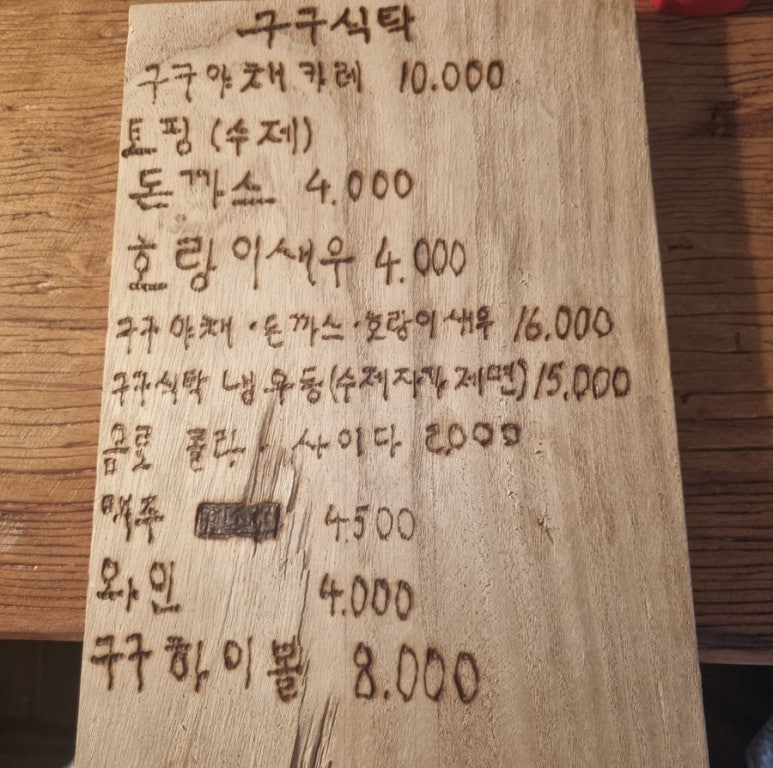 구구식탁
구구야채카레 10.000
토핑(수제)
돈까스 4.000
호랑이새우 4.000
구구야채·돈까스·호랑이새우 16.000
구구식탁 냄비우동(수제자가제면) 15.000
음료 콜라·사이다 2.000
맥주 4.500
와인 4.000
구구하이볼 8.000